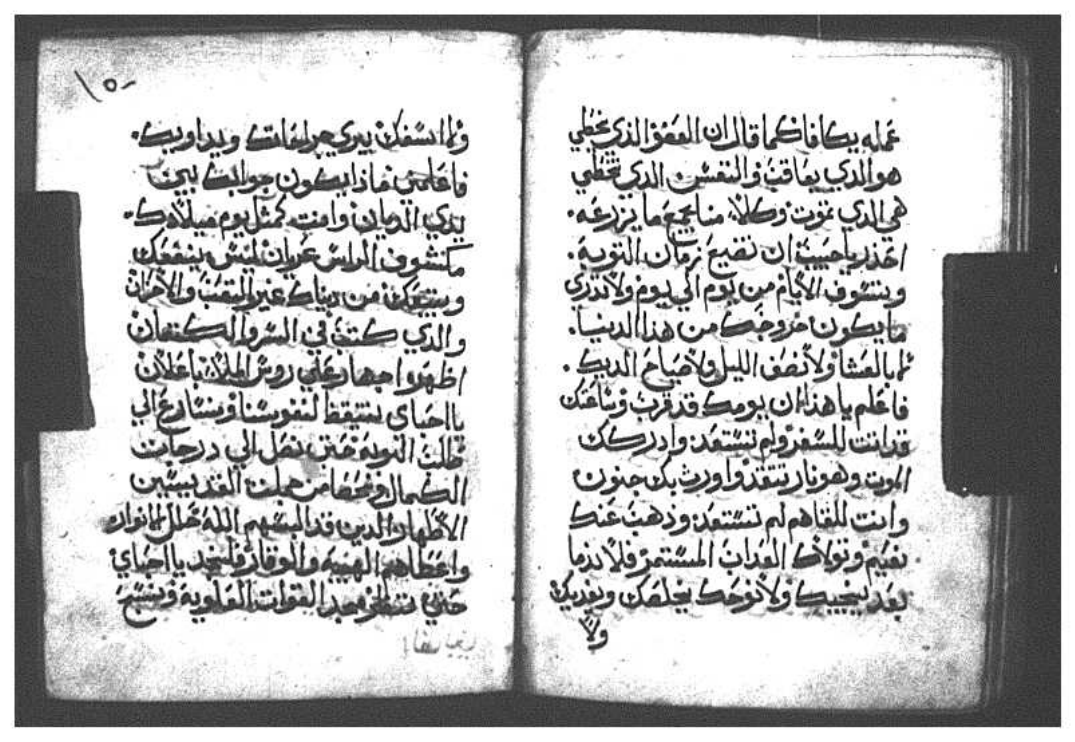 عمله يكافا كما قال ان العضو الذي يخطي
هو الذي يعاقب والنفس الذي تخطي
هي الذي تموت وكلاً منا يجمع ما يزرعه.
احذر يا حبيب ان تضيع زمان التوبة.
وتسوف الايام من يوم الي يوم ولا تدري
ما يكون خروجك من هذا الدنيا.
اما بالعشا ولا نصف الليل ولا صياح الديك.
فاعلم يا هذا ان يومك قد قرب وساعتك
قد انت للسفر ولم تستعد وادركك
الموت وهو نار تتقد واورث بك جنون
وانت للقاهم لم تستعد وذهب عنك
نعيم وتولاك العذاب المستمر فلا
بعد يجيبك ولا نوحك يخلصك ويفديك
ولا
١٥٠
ولا اسفك يبري جراحاتك ويداويك.
فاعلمني ماذا يكون جوابك بين
يدي الديان وانت كمثل يوم ميلادك.
مكشوف الراس عريان ليس ينفعك
ويتبعك من دنياك غير التعب والاحزان
والذي كنت في السر والكتمان
اظهروا جهار علي روس الملا باعلان
يا احباي نستيقظ لنفوسنا ونسارع الي
طلب التوبة حتي نصل الي درجات
الكمال من القديسين
الاطهار الذين قد البسهم الله حلل الانوار
واعطاهم الهيبة والوقار فلنجد يا احباي
حتي ننظر مجد القوات العلوية ونسبح